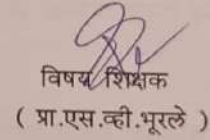 विषय शिक्षक
( प्रा.एस.व्ही.भूरले )